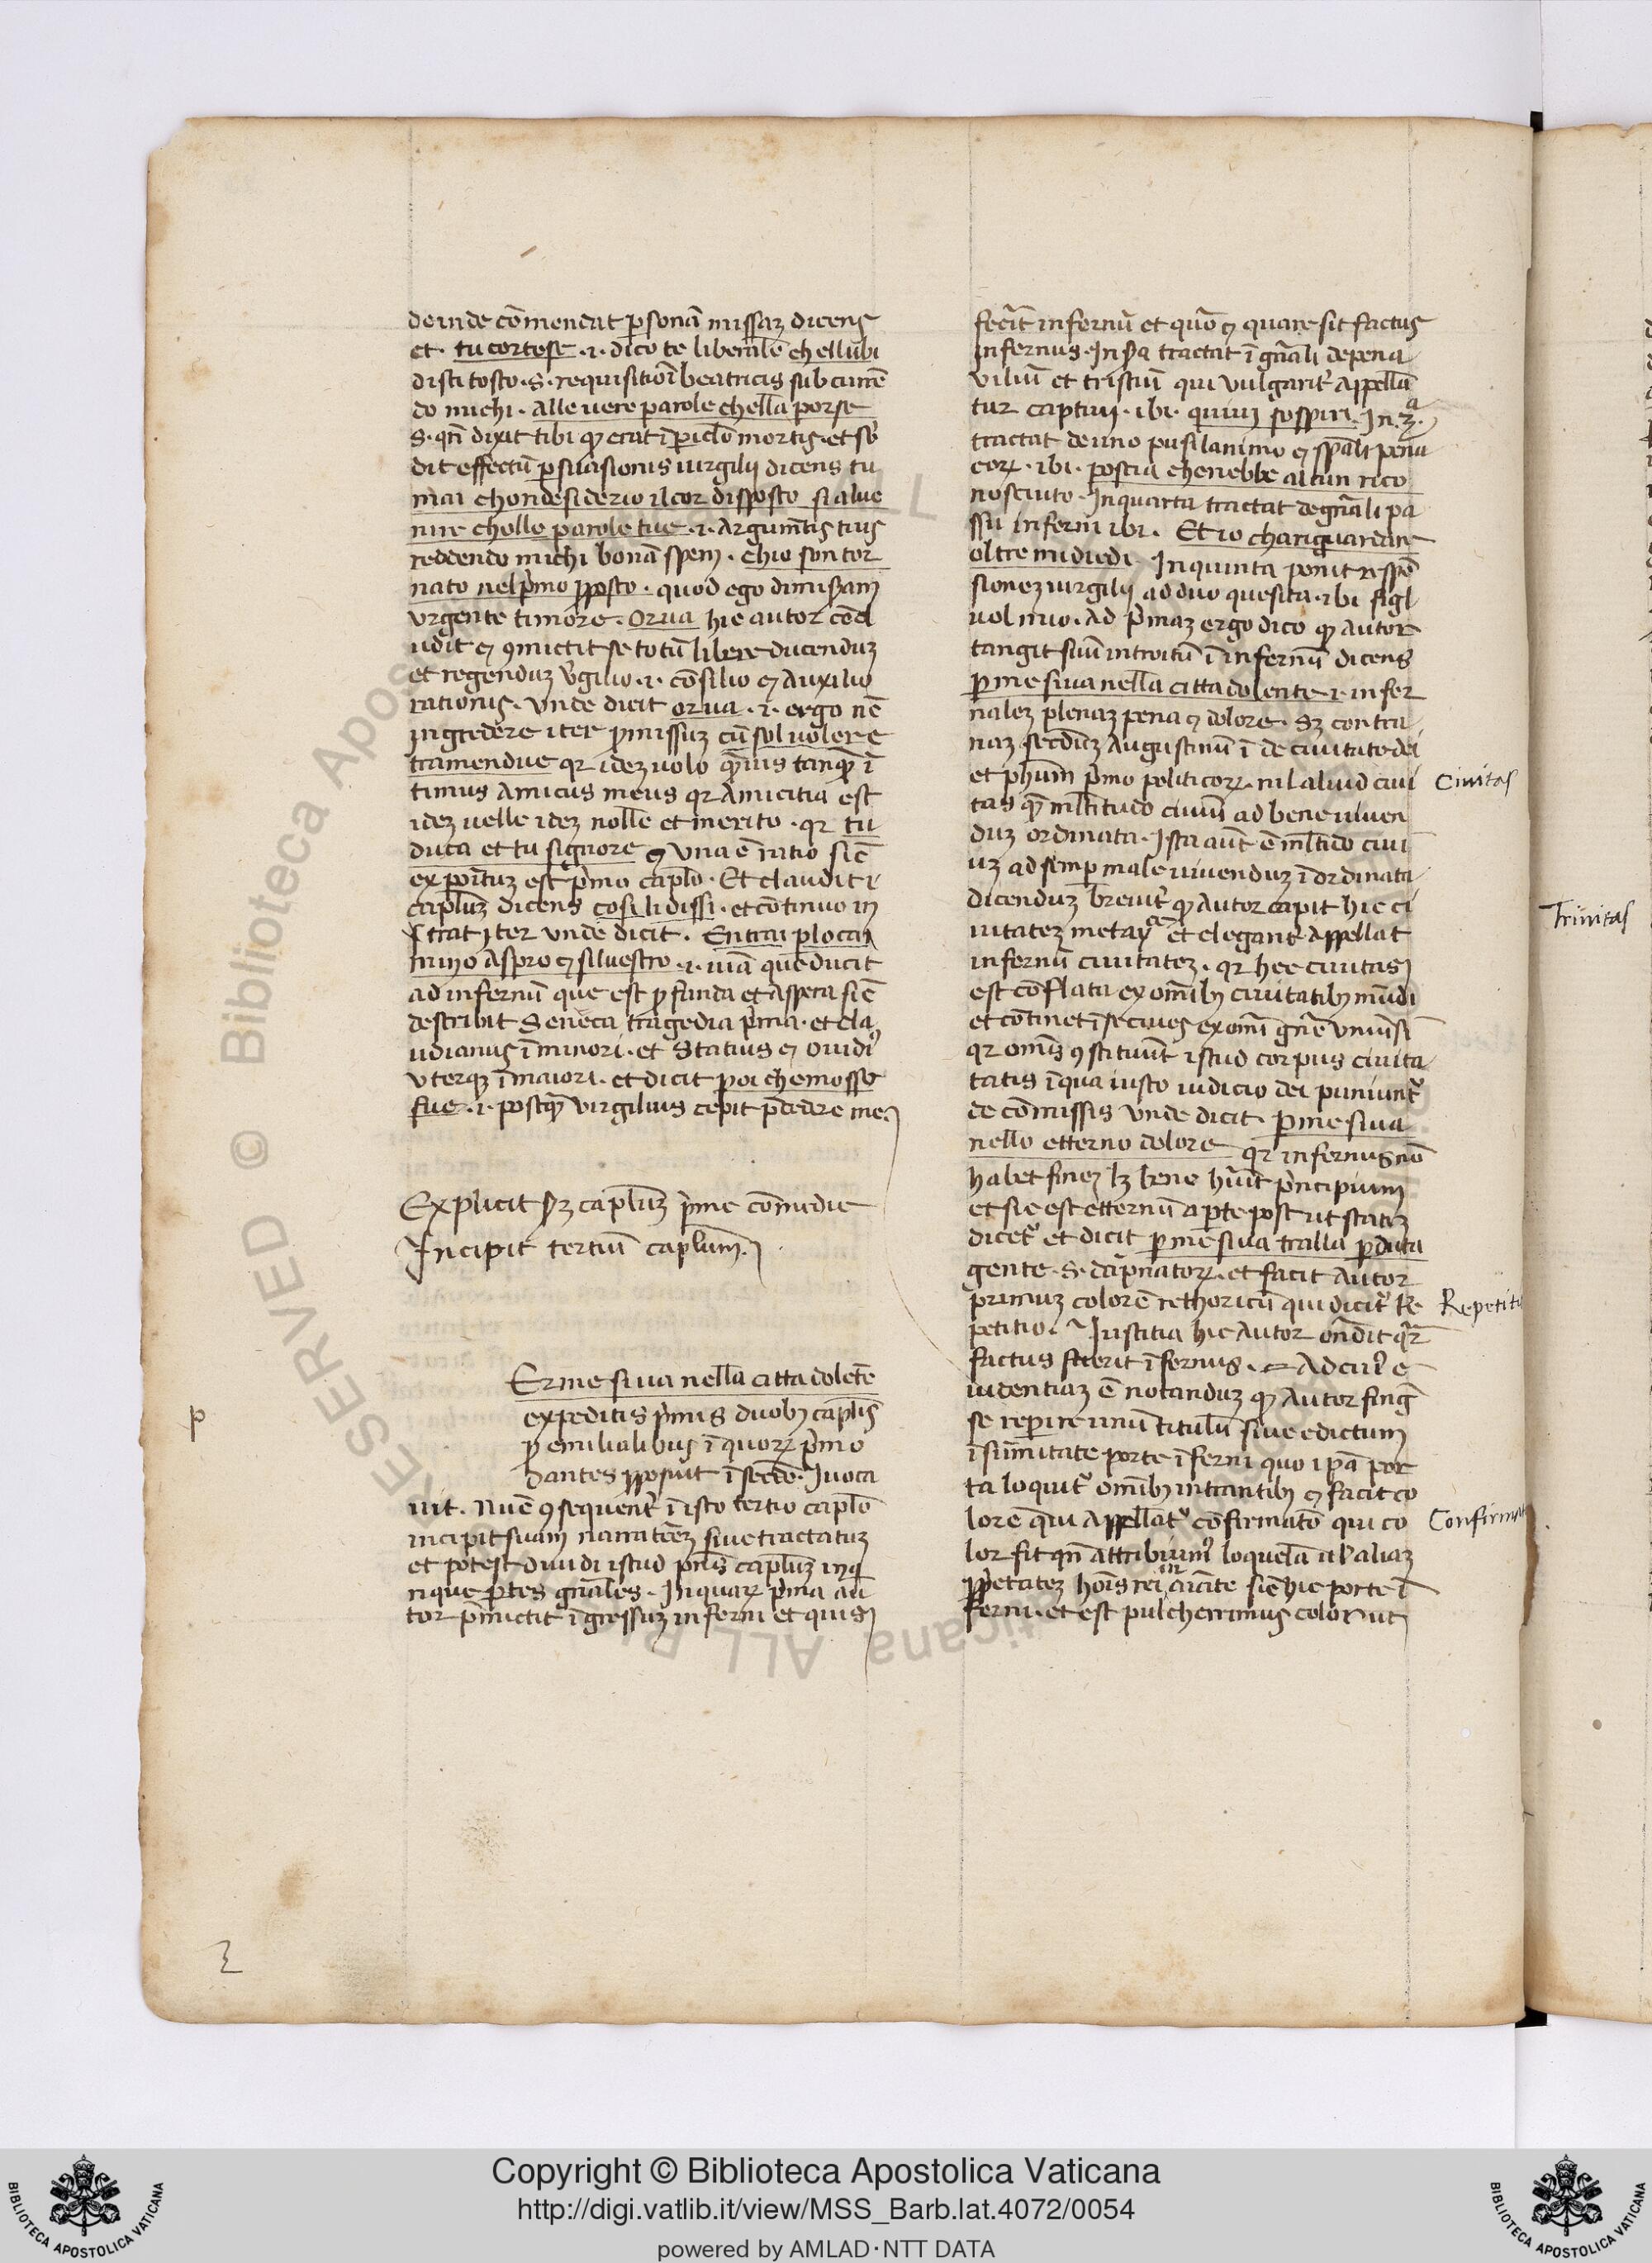 deinde cōmendat ꝑsonā missaȝ dicens
et. tu cortese .i. dico te liberalē ch ellubi
disti tosto .s. requisitiōi beatricis subcurrē
do michi. alle uere parole chella porse
s. qn̄ dixit tibi ꝙ erat ī ꝑiclo mortis. et sb̄
dit effectū ꝑsuasionis uirgilij dicens tu
mai chondesiderio il cor disposto si alue
nire cholle parole tue .i. argum̄tis tuis
reddendo michi bonā spem. chio son tor
nato nel p̄mo ꝓposto. quod ego dimiseram
urgente timore. Or ua hic autor cōcl
udit ⁊ ꝯmictit se totū libere ducenduȝ
et regenduȝ v̄gilio .i. cōsilio ⁊ auxilio
rationis. Vnde dicit or ua .i. ergo nc̄
ingredere iter p̄missuȝ cū sol uolere
tramendue qꝛ ideȝ uolo qḍ uis tanqȝ ī
timus amicus meus qꝛ amicitia est
ideȝ uelle ideȝ nolle et merito. qꝛ tu
duca et tu signore ⁊ una ē ratio sic̄
expoītuȝ est p̄mo caplo. Et claudit
capluȝ dicens cosi li dissi. et cōtinuo in
trat iter unde dicit. Entrai ꝑlo cam
mino aspro ⁊ siluestro .i. uiā que ducit
ad infernū que est ꝓfunda et aspera sic̄
describit Seneca tragedia p̄ma. et cla
udianus ī minori. et Statius ⁊ ouidiꝰ
uterqȝ ī maiori. et dicit poi che mosso
fue .i. postqȝ virgilius cepit p̄cedere me
Explicit sȝ capluȝ p̄me cōmedie
Incipit tertiū caplum
Erme si ua nella citta dolētē
expeditis p̄mis duobȝ caplis
ꝓemilialibus ī quoꝝ p̄mo
dantes ꝓposuit ī secdo. Inuoca
uit. Nūc ꝯsequent̄ ī isto tertio caplo
incipit suam narratōeȝ siue tractatuȝ
et potest diuidi istud p̄ns capluȝ in q
nque ꝑtes gn̄ales. In quaꝝ p̄ma au
tor p̄mictit īgressuȝ inferni et quis
fecit infernū et quō ⁊ quare sit factus
infernus. In sa tractat ī gn̄ali de pena
viliū et tristiū qui vulgarit̄ appella
tur captiui. ibi. quiui sospiri. In .3.ᵃ
tractat de uno pusilanimo ⁊ spāli pena
eoꝝ. ibi. poscia chenebbe alcun rico
nosciuto. In quarta tractat de gn̄ali pa
ssu inferni ibi. Et io chariguardare
oltre mi diedi. In quinta ponit respō
sioneȝ uirgilij ad duo quesita. ibi figl
uol mio. Ad p̄maȝ ergo dico ꝙ autor
tangit suū introitū ī infernū dicens
ꝑ me si ua nella citta dolente .i. infer
naleȝ plenaȝ pena ⁊ dolore. Sȝ contra
naȝ secdūȝ Augustinū ī de ciuitate dei
et phūm p̄mo politicoꝝ. nil aliud ciui
tas qȝ ml̄titudo ciuiū ad bene uiuen
duȝ ordinata. Ista aūt ē ml̄tido ciui
uȝ ad semp male uiuenduȝ īordinata
dicenduȝ breuit̄ ꝙ autor capit hic ci
uitateȝ metaȳce et elegant̄ appellat
infernū ciuitateȝ. qꝛ hec ciuitas
est cōflata ex omībȝ ciuitatibȝ mūdi
et cōtinet ī se ciues ex omī gn̄e uniūsi
qꝛ omīs ꝯstituūt istud corpus ciuita
tatis ī qua iusto iudicio dei puniunt̄
de cōmissis unde dicit. ꝑ me si ua
nello etterno dolore qꝛ infernus nō
habet fineȝ lȝ bene hūit p̄ncipium
et sic est etternū a ꝑte post ut statiȝ
dicet̄ et dicit ꝑ me si ua tralla ꝑduta
gente .s. dāpnatoꝝ. et facit autor
primuȝ colorē rethoricū qui dicit̄ Re
petitio. Iustitia hic autor on̄dit qr̄
factus fuerit īfernus. Ad cuiꝰ e
uidentiaȝ ē notanduȝ ꝙ autor fing
se reperire unū titulū siue edictum
ī sūmitate porte īferni quo ipā por
ta loquit̄ omībȝ intrantibȝ ⁊ facit co
lorē qui appellat̄ cōfirmatō qui co
lor fit qn̄ attribuimꝰ loquelā ul aliaȝ
ꝓprietateȝ hoīs rei inaīate sic̄ hic porte ī
ferni. et est pulcherrimus color ut
Ciuitas
Repetitio
Confirmat
Trinitas
p
Copyright © Biblioteca Apostolica Vaticana
http://digi.vatlib.it/view/MSS_Barb.lat.4072/0054
powered by AMLAD·NTT DATA
BIBLIOTECA APOSTOLICA VATICANA
BIBLIOTECA APOSTOLICA VATICANA